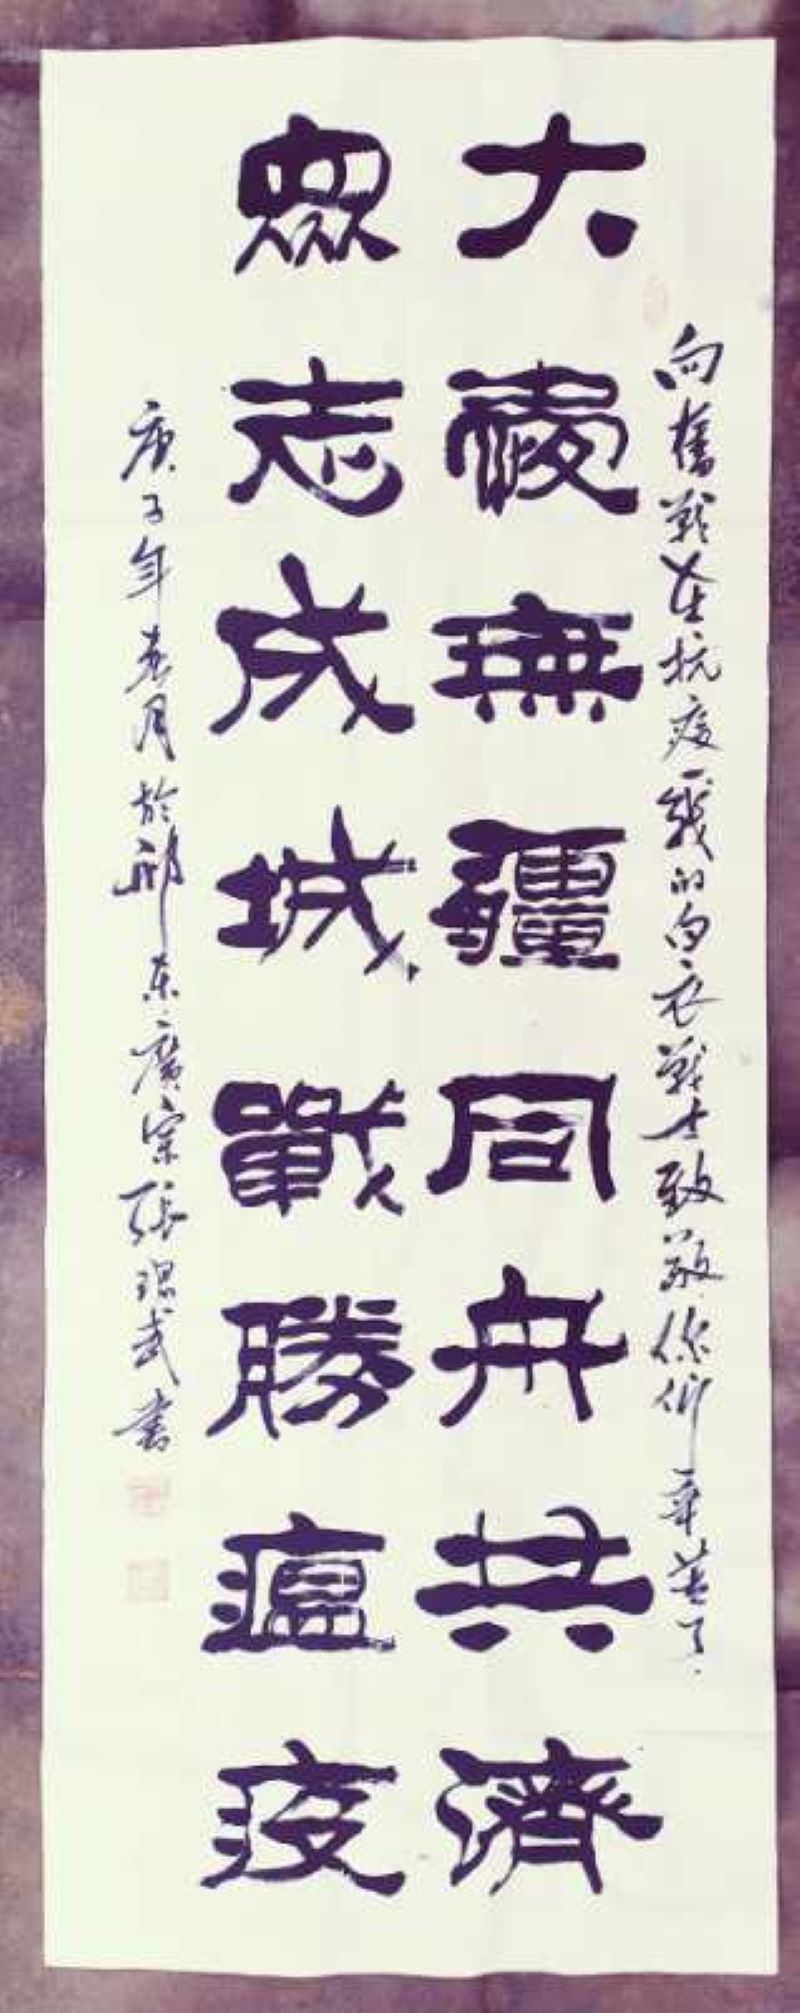 向奮戰在抗疫一綫的白衣戰士致敬你們辛苦了
大愛無疆同舟共濟
眾志成城戰勝瘟疫
庚子年春月於邢東廣宗張現武書